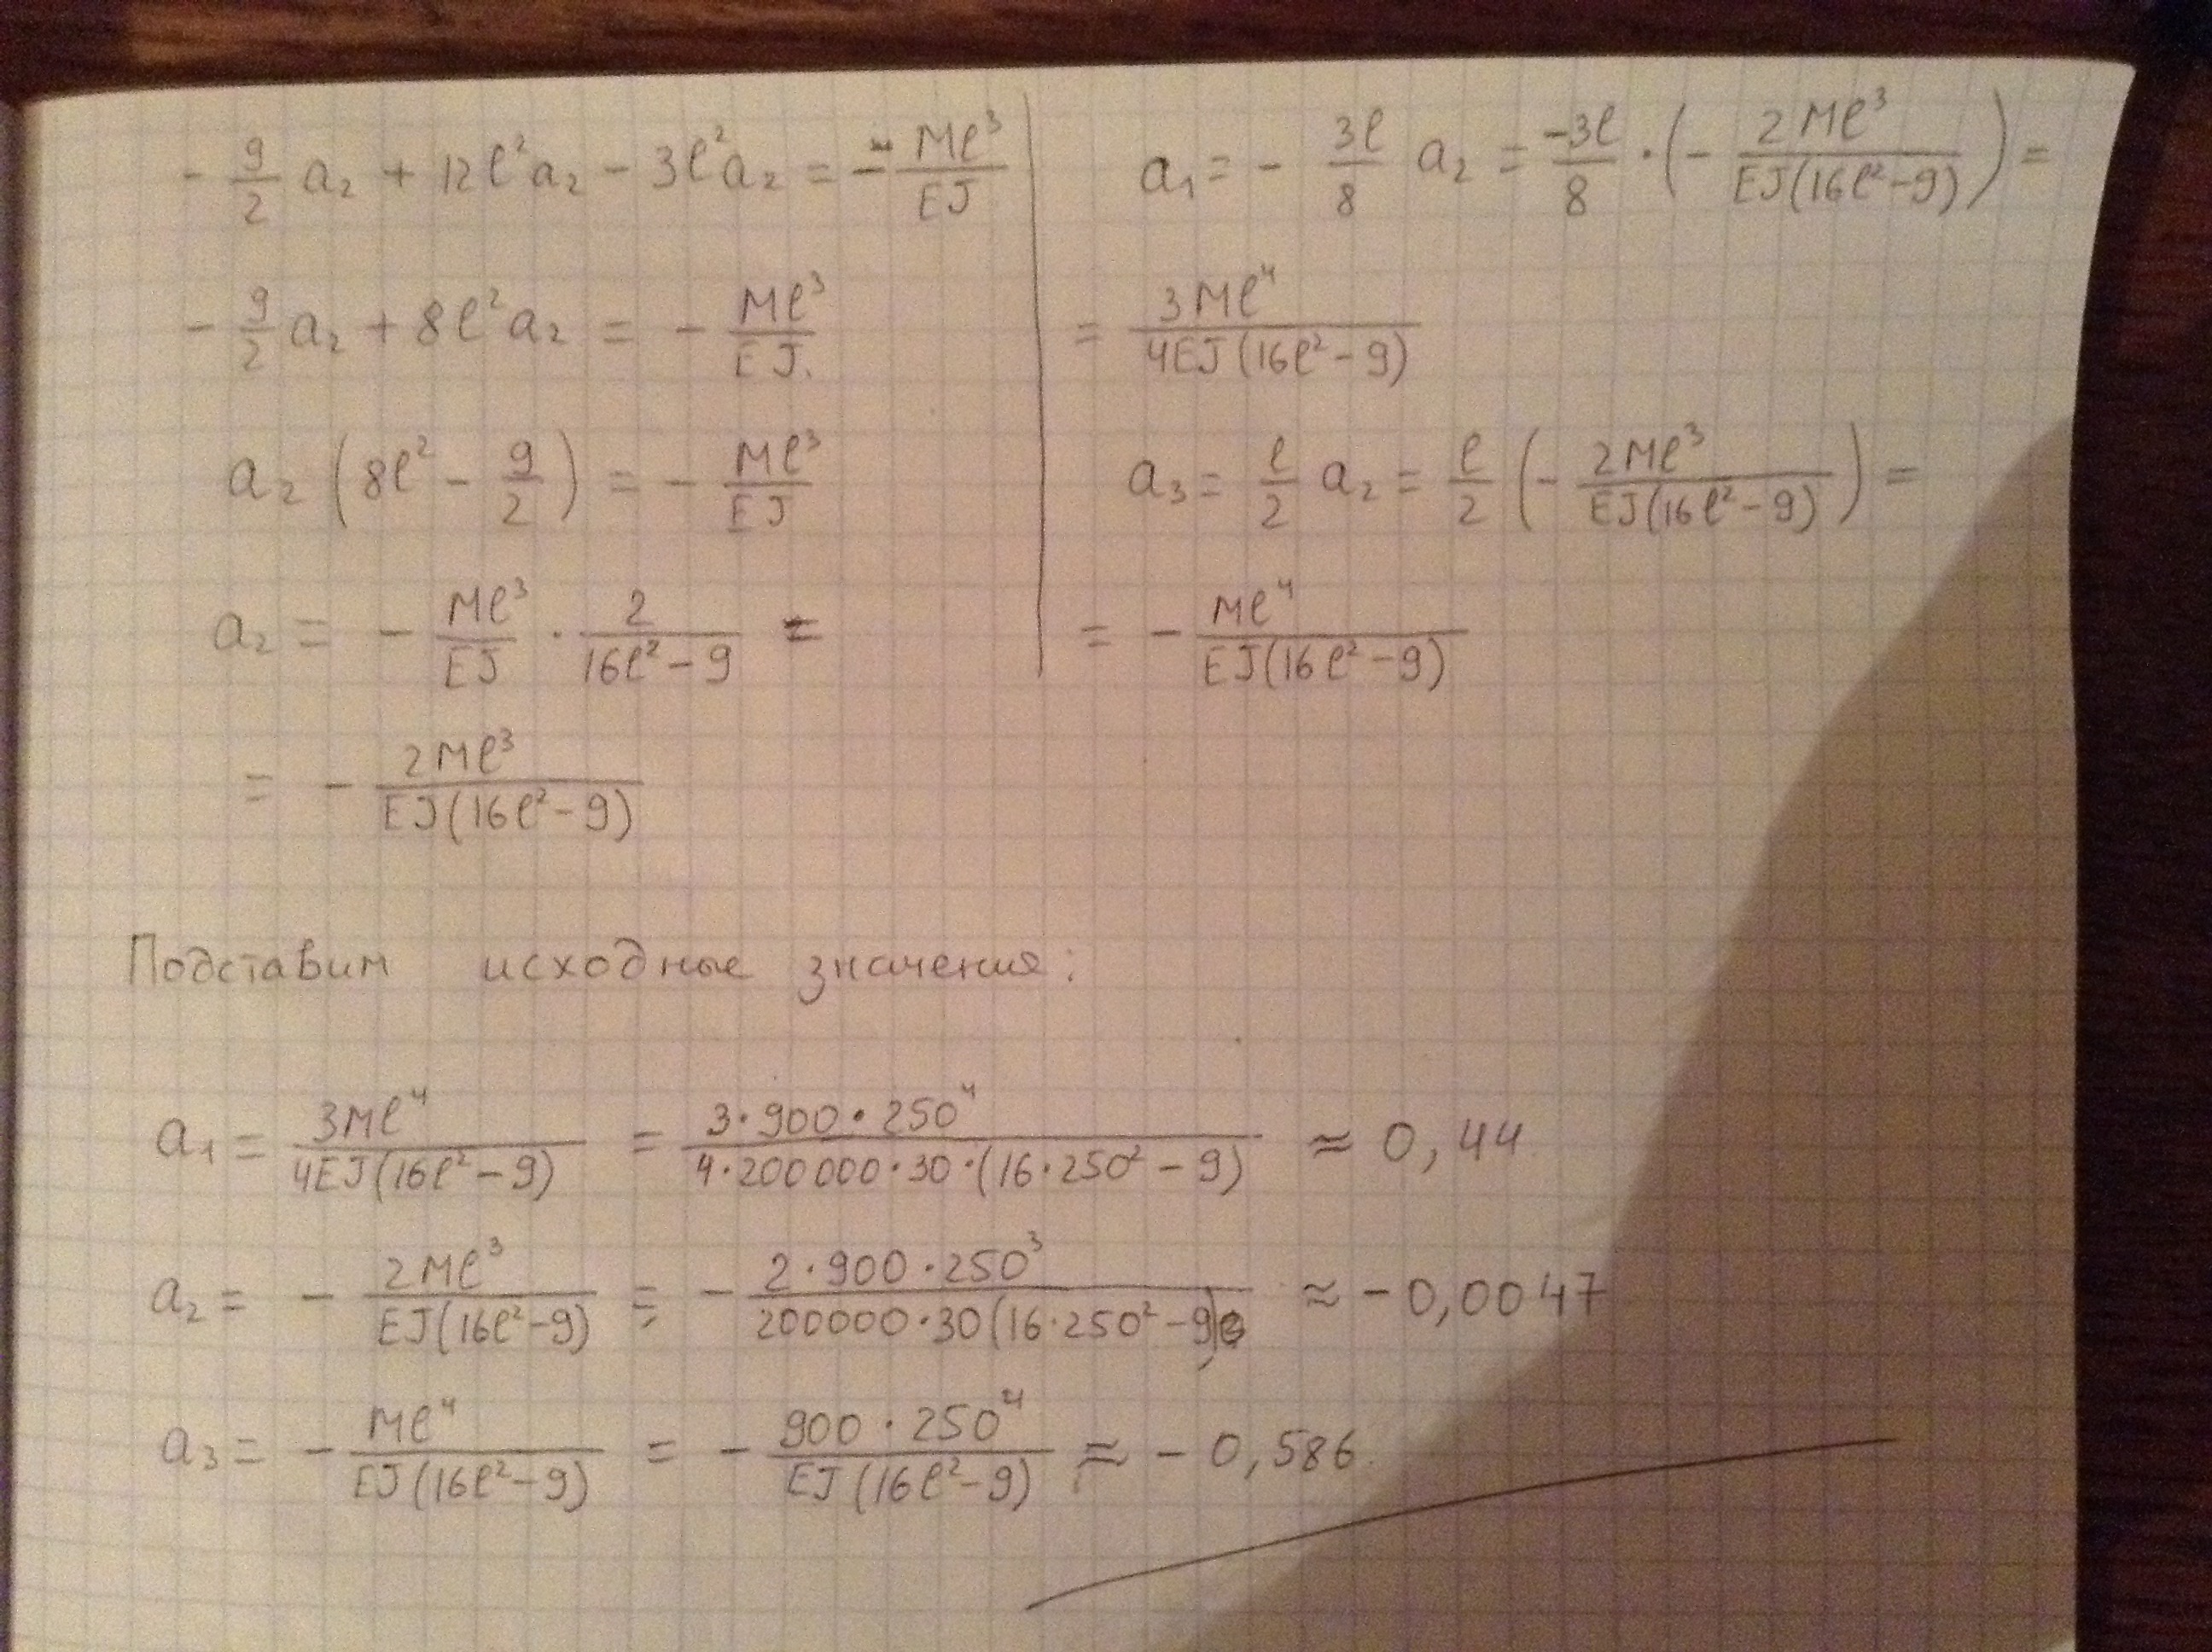 - 9/2 a₂ + 12ℓ²a₂ - 3ℓ²a₂ = - Mℓ³/EJ
- 9/2 a₂ + 8ℓ²a₂ = - Mℓ³/EJ.
a₂ (8ℓ² - 9/2) = - Mℓ³/EJ
a₂ = - Mℓ³/EJ · 2/(16ℓ² - 9) =
= - 2Mℓ³/(EJ(16ℓ² - 9))
a₁ = - 3ℓ/8 a₂ = -3ℓ/8 · (- 2Mℓ³/(EJ(16ℓ² - 9))) =
= 3Mℓ⁴/(4EJ(16ℓ² - 9))
a₃ = ℓ/2 a₂ = ℓ/2 (- 2Mℓ³/(EJ(16ℓ² - 9))) =
= - Mℓ⁴/(EJ(16ℓ² - 9))
Подставим исходные значения:
a₁ = 3Mℓ⁴/(4EJ(16ℓ² - 9)) = 3·900·250⁴/(4·200000·30·(16·250² - 9)) ≈ 0,44
a₂ = - 2Mℓ³/(EJ(16ℓ² - 9)) = - 2·900·250³/(200000·30(16·250² - 9)) ≈ - 0,0047
a₃ = - Mℓ⁴/(EJ(16ℓ² - 9)) = - 900·250⁴/(EJ(16ℓ² - 9)) ≈ - 0,586.